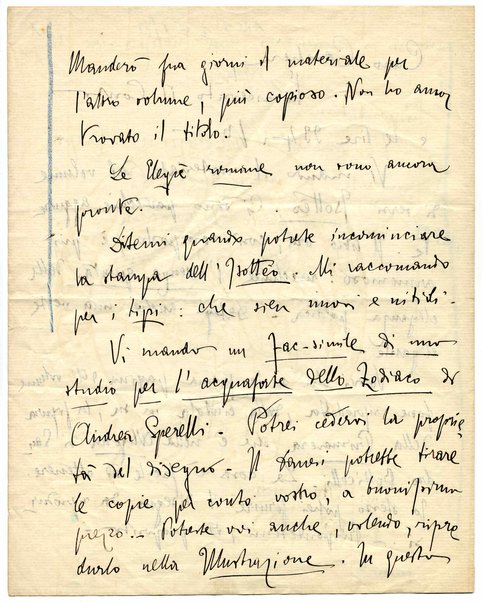 Manderò fra giorni il materiale per
l'altro volume, più copioso. Non ho ancor
trovato il titolo.
Le Elegie romane non sono ancora
pronte.
Ditemi quando potrete incominciare
la stampa dell'Isottèo. Mi raccomando
per i tipi: che sien nuovi e nitidi.
Vi mando un fac-simile di uno
studio per l'acquaforte dello Zodiaco di
Andrea Sperelli. Potrei cedervi la proprie
tà del disegno. Il Danesi potrebbe tirare
le copie per conto vostro, a buonissimo
prezzo. Potreste voi anche, volendo, ripro
durlo nella Illustrazione. In questo